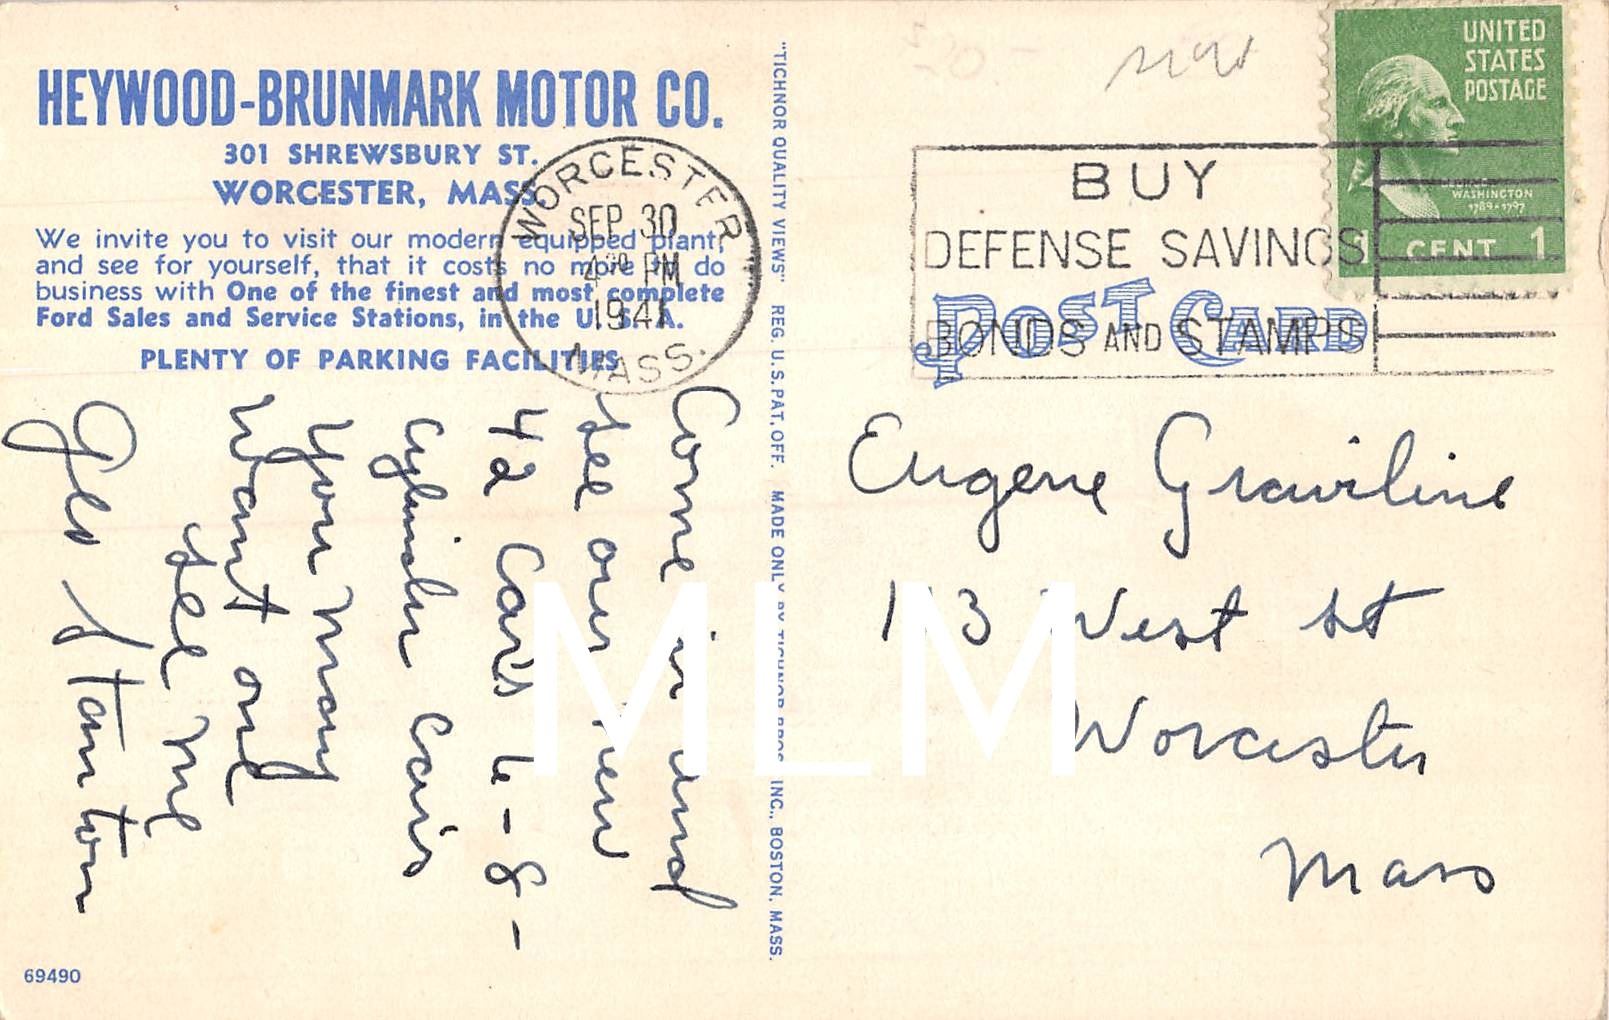 HEYWOOD-BRUNMARK MOTOR CO.
301 SHREWSBURY ST.
WORCESTER, MASS.
We invite you to visit our modern equipped plant,
and see for yourself, that it costs no more to do
business with One of the finest and most complete
Ford Sales and Service Stations, in the U. S. A.
PLENTY OF PARKING FACILITIES
WORCESTER
SEP 30
4 30 PM
1941
MASS.
Come in and
see our new
42 Cars 6-8-
cylinder Cars
you may
want one
see me
Geo Stanton
69490
"TICHNOR QUALITY VIEWS" REG. U.S. PAT. OFF. MADE ONLY BY TICHNOR BROS. INC., BOSTON, MASS.
UNITED
STATES
POSTAGE
WASHINGTON
1789-1797
1 CENT 1
BUY
DEFENSE SAVINGS
BONDS AND STAMPS
POST CARD
Eugene Graviline
113 West St
Worcester
Mass
MLM